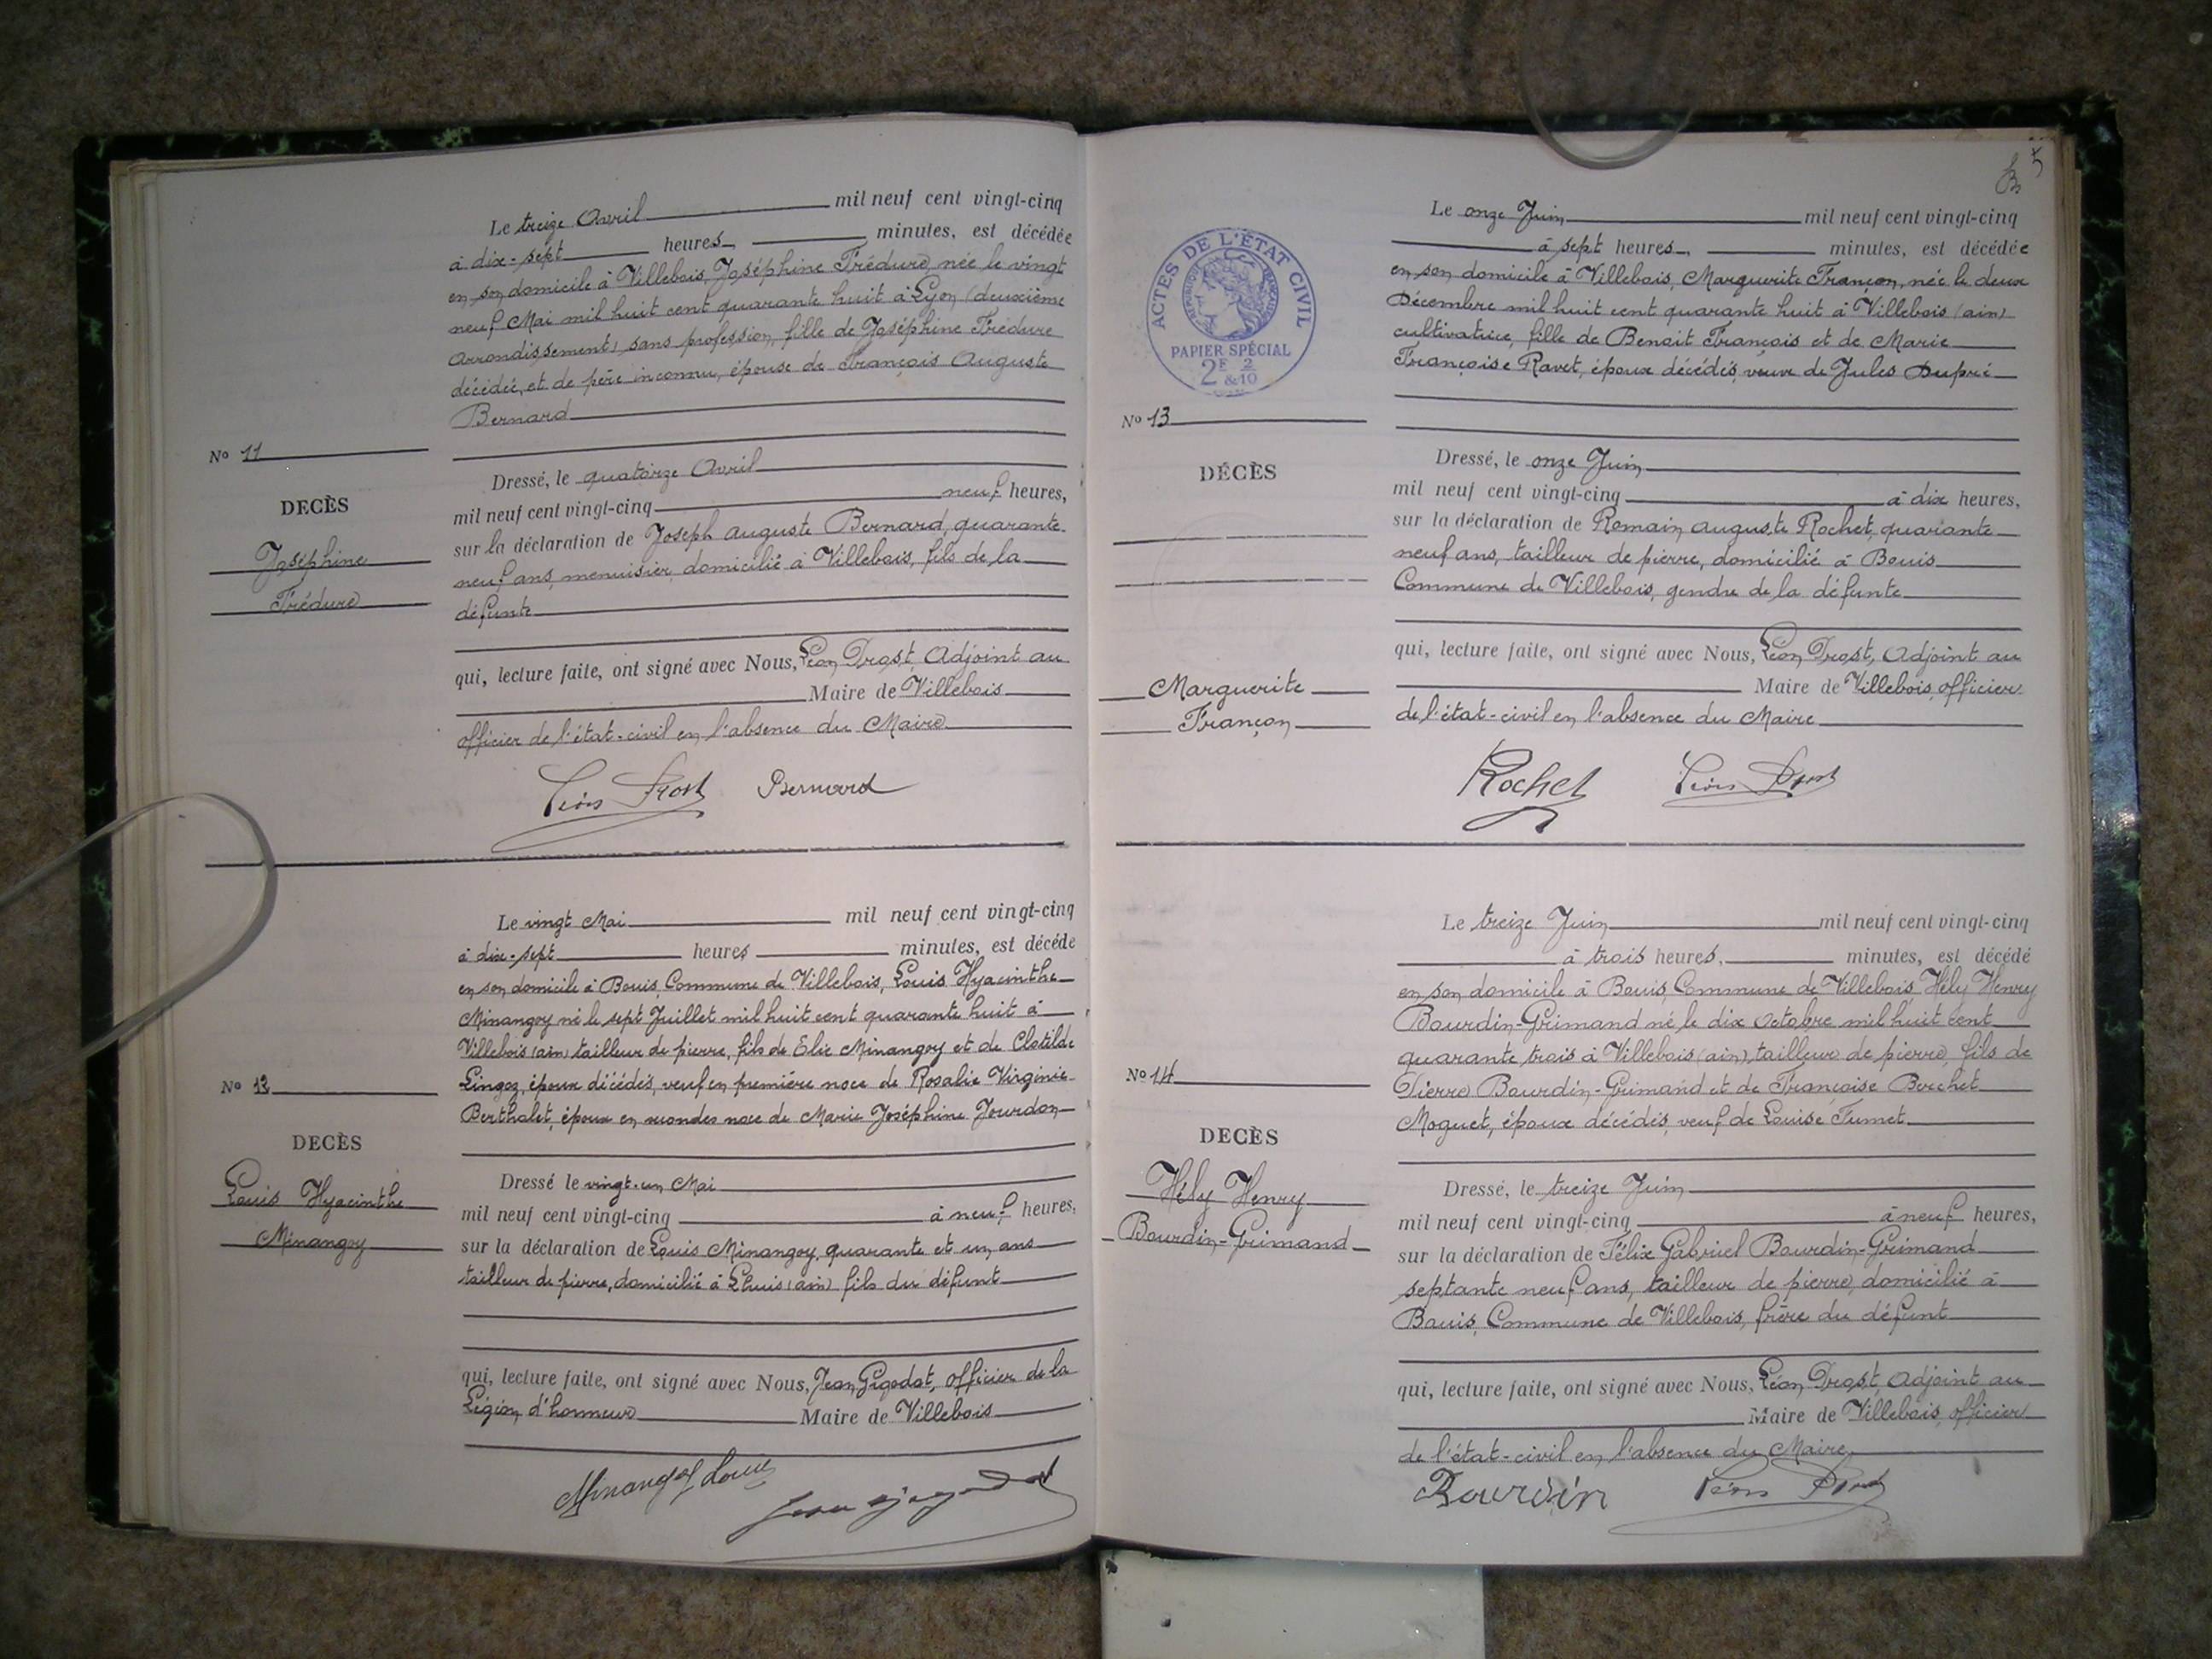 Le treize Avril mil neuf cent vingt-cinq
à dix-sept heures, minutes, est décédée
en son domicile à Villebois, Joséphine Frédure, née le vingt
neuf Mai mil huit cent quarante huit à Lyon (deuxième
Arrondissement) sans profession, fille de Joséphine Frédure
décédée, et de père inconnu, épouse de François Auguste
Bernard
No 11
DECÈS
Joséphine
Frédure
Dressé, le quatorze Avril
mil neuf cent vingt-cinq neuf heures,
sur la déclaration de Joseph Auguste Bernard, quarante-
neuf ans, menuisier, domicilié à Villebois, fils de la
défunte
qui, lecture faite, ont signé avec Nous, Léon Drost, Adjoint au
Maire de Villebois
officier de l'état-civil en l'absence du Maire
Léon Drost Bernard
Le vingt Mai mil neuf cent vingt-cinq
à dix-sept heures minutes, est décédé
en son domicile à Bouis, Commune de Villebois, Louis Hyacinthe
Minangoy né le sept Juillet mil huit cent quarante huit à
Villebois (ain) tailleur de pierre, fils de Elie Minangoy et de Clotilde
époux décédés, veuf en première noce de Rosalie Virginie
Berthelet, époux en secondes noce de Marie Joséphine Jourdon
No 12
DECÈS
Louis Hyacinthe
Minangoy
Dressé le vingt-un Mai
mil neuf cent vingt-cinq à neuf heures,
sur la déclaration de Louis Minangoy, quarante et un ans
tailleur de pierre, domicilié à Lhuis (ain) fils du défunt
qui, lecture faite, ont signé avec Nous, Jean Gigodot, officier de la
Légion d'honneur Maire de Villebois
Minangoy Louis Jean Gigodot
5
ACTES DE L'ÉTAT CIVIL
RÉPUBLIQUE FRANÇAISE
PAPIER SPÉCIAL
2F 2
&10
Le onze Juin mil neuf cent vingt-cinq
à sept heures, minutes, est décédée
en son domicile à Villebois, Marguerite Françon, née le deux
Décembre mil huit cent quarante huit à Villebois (ain)
cultivatrice, fille de Benoit François et de Marie
Françoise Ravet, époux décédés, veuve de Jules Dupré
No 13
DÉCÈS
Marguerite
Françon
Dressé, le onze Juin
mil neuf cent vingt-cinq à dix heures,
sur la déclaration de Romain Auguste Rochet, quarante
neuf ans, tailleur de pierre, domicilié à Bouis
Commune de Villebois, gendre de la défunte
qui, lecture faite, ont signé avec Nous, Léon Drost, Adjoint au
Maire de Villebois, officier
de l'état-civil en l'absence du Maire
Rochet Léon Drost
Le treize Juin mil neuf cent vingt-cinq
à trois heures, minutes, est décédé
en son domicile à Bouis, Commune de Villebois Hély Henry
Bourdin-Grimand né le dix Octobre mil huit cent
quarante trois à Villebois (ain), tailleur de pierre, fils de
Pierre Bourdin-Grimand et de Françoise Berchet
Moguet, époux décédés, veuf de Louise Fumet
No 14
DECÈS
Hély Henry
Bourdin-Grimand
Dressé, le treize Juin
mil neuf cent vingt-cinq à neuf heures,
sur la déclaration de Félix Gabriel Bourdin-Grimand
septante neuf ans, tailleur de pierre, domicilié à
Bouis, Commune de Villebois, frère du défunt
qui, lecture faite, ont signé avec Nous, Léon Drost, Adjoint au
Maire de Villebois, officier
de l'état-civil en l'absence du Maire
Bourdin Léon Drost